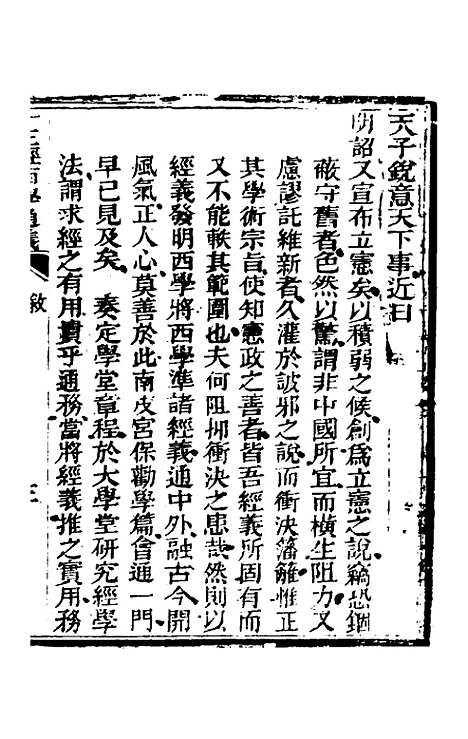 天子銳意天下事近日
明詔又宣布立憲矣以積弱之候創爲立憲之說竊恐錮
蔽守舊者色然以驚謂非中國所宜而橫生阻力又
慮謬託維新者久灌於詖邪之說而衝決藩籬惟正
其學術宗旨使知憲政之善者皆吾經義所固有而
又不能軼其範圍也夫何阻抑衝決之患哉然則以
經義發明西學將西學準諸經義通中外融古今開
風氣正人心莫善於此南皮宮保勸學篇會通一門
早已見及矣 奏定學堂章程於大學堂研究經學
法謂求經之有用貴乎通務當將經義推之實用務
十三經西學通義 敘 三